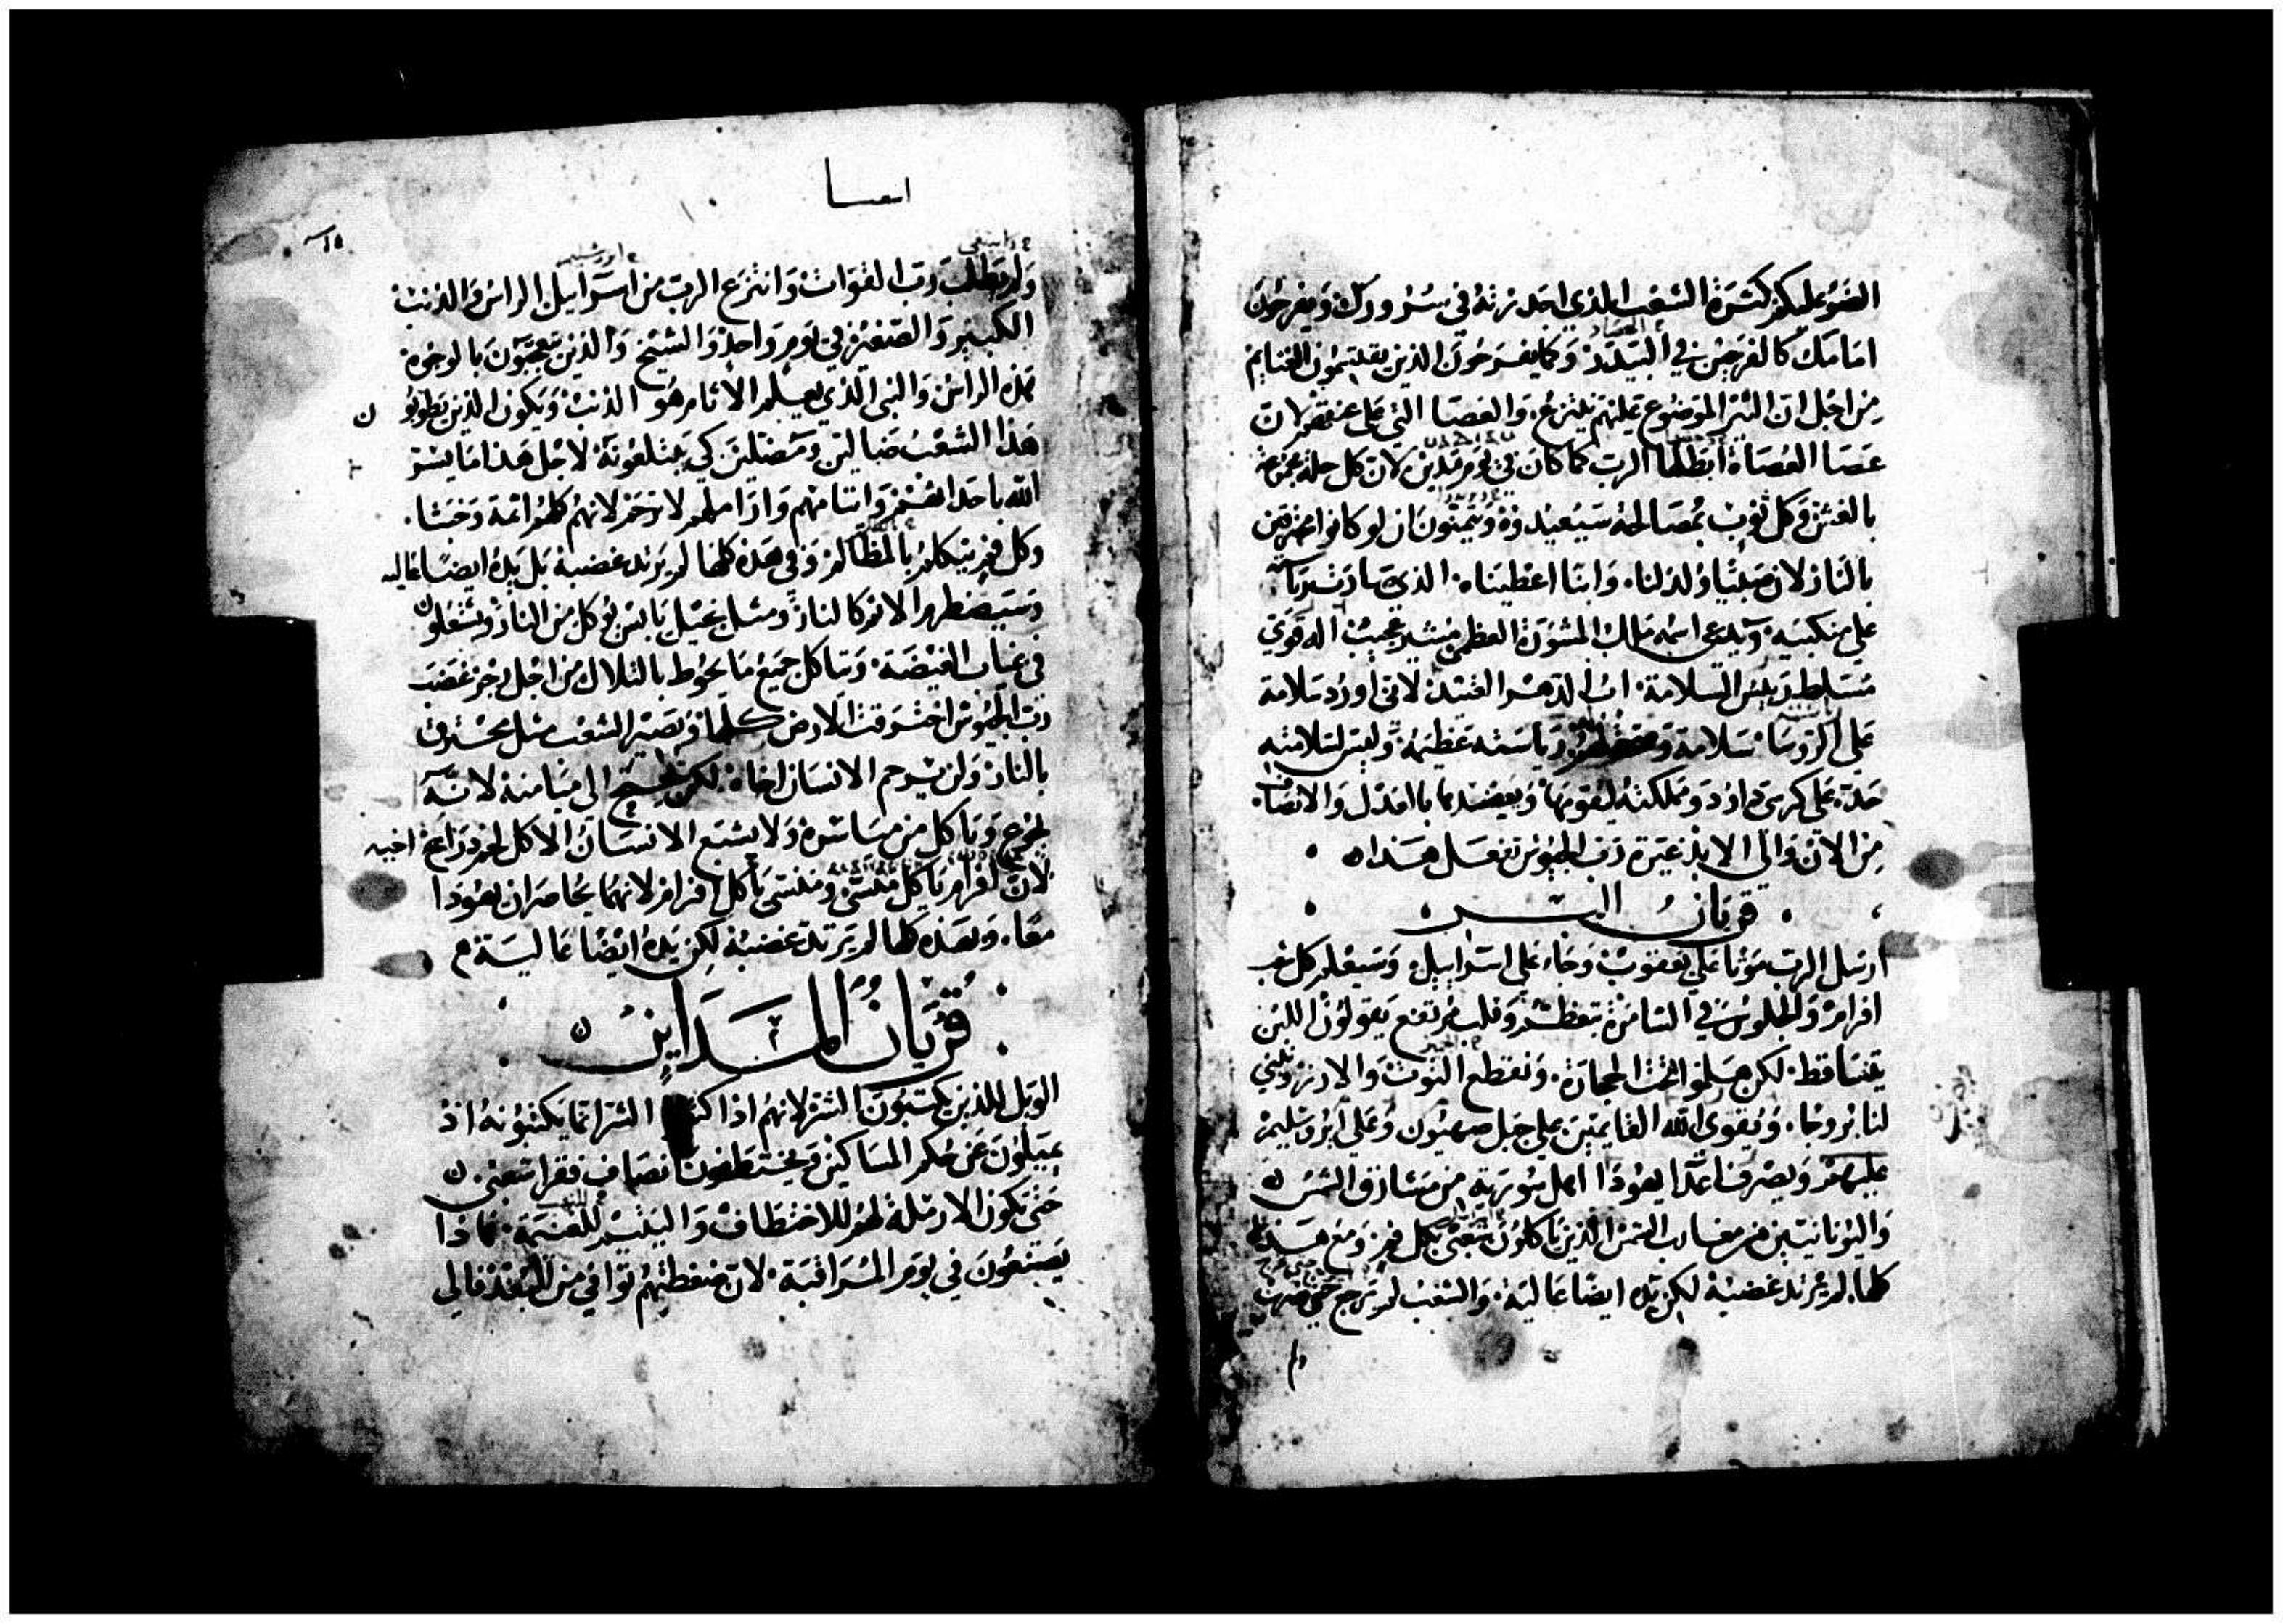 الضو عليكم كثرة الشعب الذي احدرته في سرورك ويفرحون
امامك كالفرحين في البيدر وكما يفرحون الذين يقتسمون الغنايم
من اجل ان النير الموضوع عليهم ينتزع والعصا التي على عنقهم لان
عصا العصاة ابطلها الرب كما كان في يوم مدين لان كل حلة مجموعة
بالغش وكل ثوب بمصالحة سيعيدوه ويتمنون ان لو كانوا محترقين
بالنار لان صبيا ولد لنا وابنا اعطيناه الذي صارت رياسته
على منكبيه ويدعى اسمه ملاك المشورة العظمى مشير عجيب اله قوي
مسلط رييس السلامة اب الدهر العتيد لاني اورد سلامة
على الروسا سلامة رياسته عظيمة وليس لسلامته
حد على كرسي داود ومملكته ليقومها ويعضدها بالعدل والانصاف
من الان والى الابد غيرة رب الجيوش تفعل هذا
قربان
ارسل الرب موتا على يعقوب وجا على اسراييل وسيعلم كل شعب
افرام والجلوس في السامرة بتعظم وقلب مرتفع يقولون اللبن
يتساقط لكن هلموا ننحت الحجارة ونقطع التوت والارز ونبني
لنا بروجا ويقوي الله القايمين على جبل صهيون وعلى ايروشليم
عليهم ويصرف اعدا يعودا اهل سورية من مشارق الشمس
واليونانيين من مغارب الشمس الذين ياكلون شعبي بكل فم ومع هذه
كلها لم يرتد غضبه لكن يده ايضا عالية والشعب لم يرجع حتى ضرب
ولم
اسعيا
ولم يطلب رب القوات وانتزع الرب من اسراييل الراس والذنب
الكبير والصغير في يوم واحد والشيخ والذين يتعجبون بالوجوه
هذه الراس والنبي الذي يعلم الاثام هو الذنب ويكون الذين يطوبو
هذا الشعب ضالين ومضلين كي يبتلعونه لاجل هذا ما يسر
الله باحداثهم وايتامهم واراملهم لا يرحم لانهم كلهم اثمة وخبثا
وكل فم يتكلم بالمظالم وفي هذه كلها لم يرتد غضبه بل يده ايضا عاليه
وسيضطرم الاثم كالنار ومثل نجيل يابس يوكل من النار ويشتعل
في غياب الغيضة وتاكل جميع ما يحوط بالتلال من اجل رجز غضب
رب الجيوش احترقت الارض كلها ويصير الشعب مثل محترق
بالنار ولن يرحم الانسان اخاه لكن الى ميامنه لانه
يجوع وياكل من مياسره ولا يشبع الانسان الاكل لحم ذراع اخيه
لان افرام ياكل منسى ومنسى ياكل افرام لانهما يحاصران يعودا
معا وبهذه كلها لم يرتد غضبه لكن يده ايضا عالية
قربان المداين
الويل للذين يكتبون الشر لانهم اذا الشر انما يكتبونه اذ
يميلون عن حكم المساكين ويختطفون انصاف فقرا شعبي
حتى تكون الارملة لهم للاختطاف واليتيم للغنيمة فماذا
يصنعون في يوم المراقبة لان ضغطتهم توافي من البعد فالى